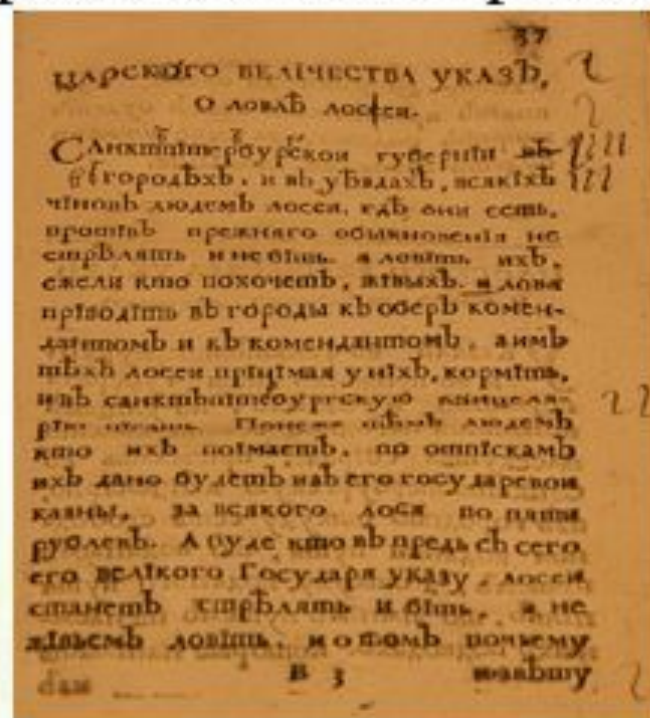 37
ЦАРСКОГО ВЕЛІЧЕСТВА УКАЗЪ,
О ловлѣ лосеи.
Санктпітербурскои губерніи въ
городѣхъ, и въ уѣздахъ, всякіхъ
чіновъ людемъ лосеи, гдѣ они есть,
протівъ прежняго обыкновенія не
стрѣлять и не біть, а ловіть ихъ,
ежели кто похочетъ, жівыхъ. и ловя
пріводіть въ городы къ оберъ комен-
дантомъ и къ комендантомъ, а имъ
тѣхъ лосеи пріімая у ніхъ, корміть,
и въ санктъпітербургскую канцеля-
рію пісать. Понеже тѣмъ людемъ
кто ихъ поімаетъ, по отпіскамъ
ихъ дано будетъ изъ его государевои
казны, за всякого лося по пяти
рублевъ. А буде кто въ предь съ сего
его велікого Государя указу, лосеи
станетъ стрѣлять и біть, а не
жівьемъ ловіть, и о томъ почьему
В 3 извѣту